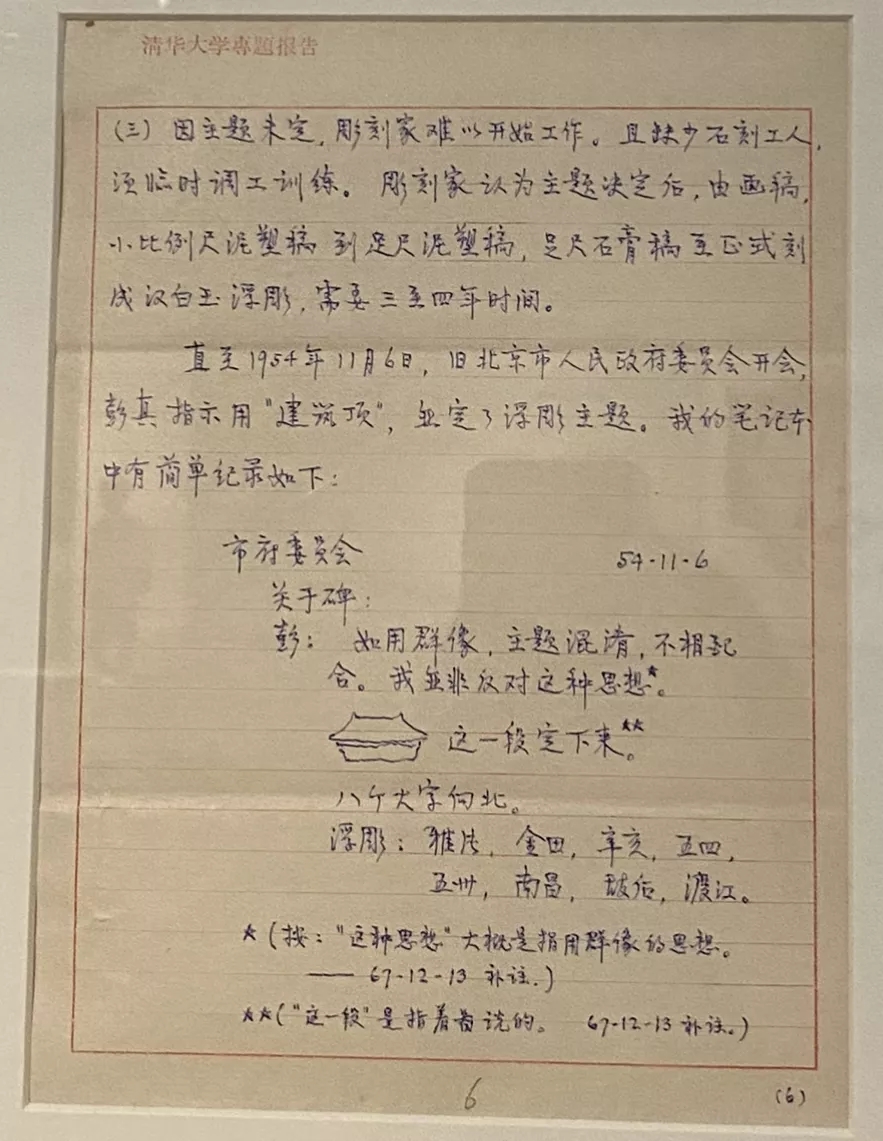 清华大学專題报告
(三) 因主题未定,彫刻家难以开始工作。且缺少石刻工人,
须临时调工训练。彫刻家认为主题决定后,由画稿,
小比例尺泥塑稿到足尺泥塑稿,足尺石膏稿至正式刻
成汉白玉浮彫,需要三至四年时间。
直至1954年11月6日,旧北京市人民政府委员会开会,
彭真指示用"建筑顶",並定了浮彫主题。我的笔记本
中有简单纪录如下:
市府委员会 54-11-6
关于碑:
彭: 如用群像,主题混淆,不相配
合。我並非反对这种思想★。
这一段定下来★★。
八个大字向北。
浮彫:雅片,金田,辛亥,五四,
五卅,南昌,敌后,渡江。
★(按:"这种思想"大概是指用群像的思想。
—— 67-12-13 补注.)
★★("这一段"是指着着说的。 67-12-13 补注。)
6
(6)